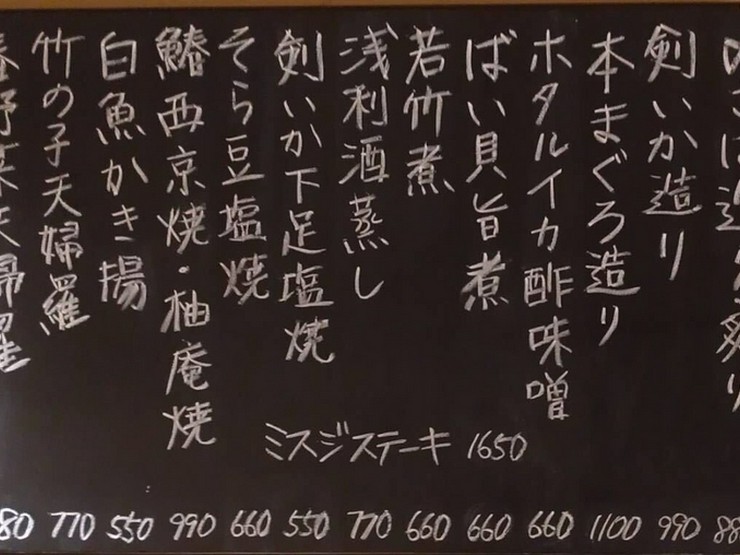 剣いか造り 990
本まぐろ造り 1100
ホタルイカ酢味噌 660
ばい貝旨煮 660
若竹煮 660
浅利酒蒸し 770
剣いか下足塩焼 550
そら豆塩焼 660
鰆西京焼・柚庵焼 990
白魚かき揚 550
竹の子天婦羅 770
ミスジステーキ 1650